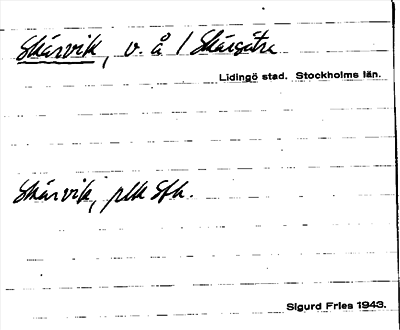 Skärvik, v. å / Skärsätra
Lidingö stad. Stockholms län.
Skärvik, plk Sth.
Sigurd Fries 1943.